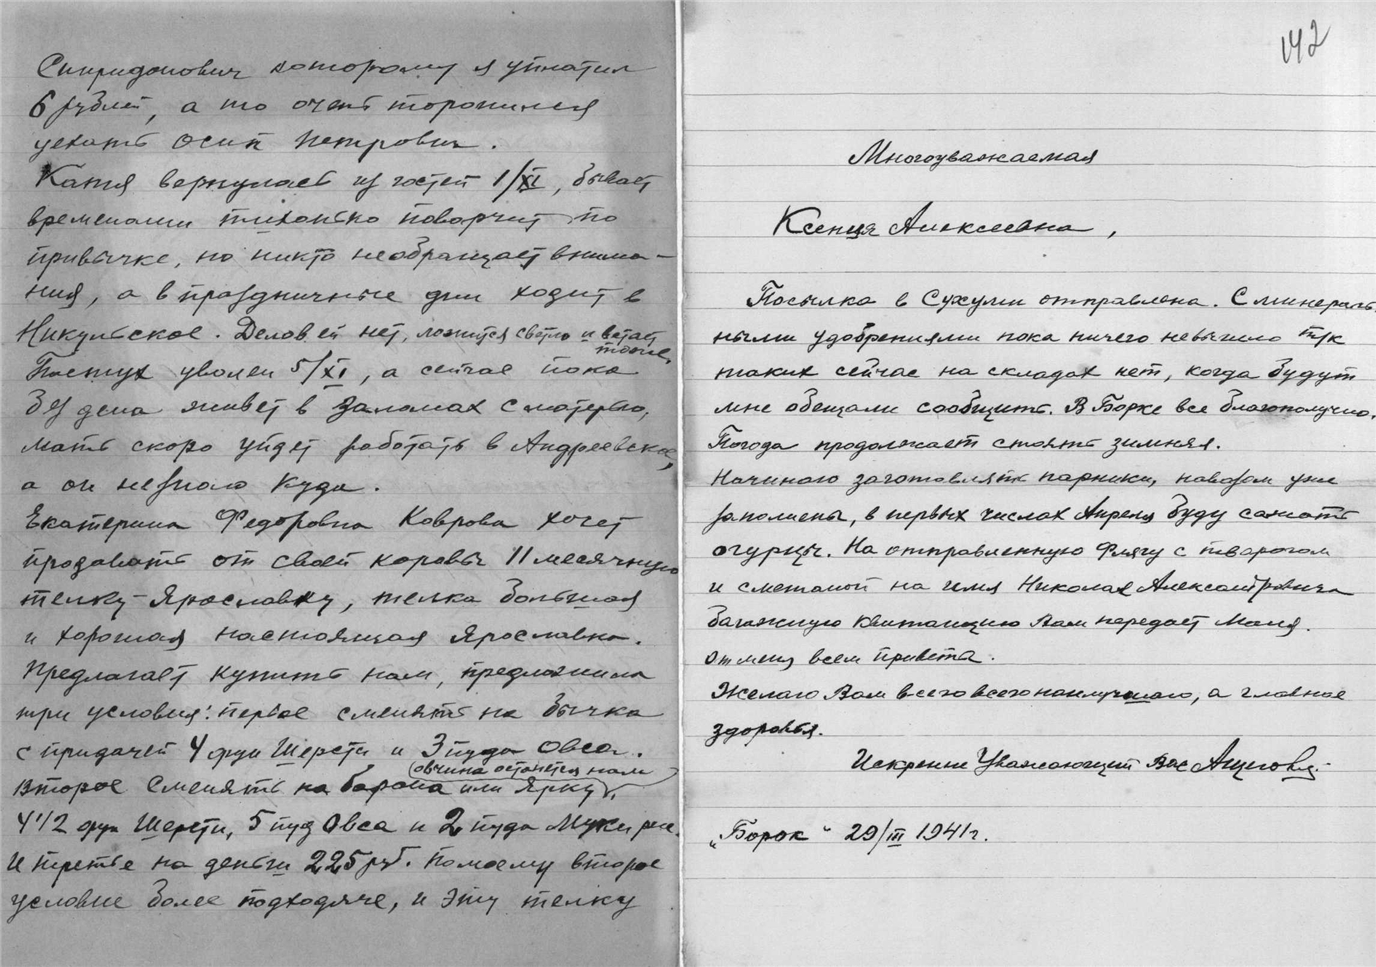 Спиридонович которому я уплатил
6 рублей, а то очень торопился
уехать Осип Петрович.
Катя вернулась из гостей 1/XI, бывает
временами тихонько поворчит по
привычке, но никто необращает внима-
ния, а в праздничные дни ходит в
Никульское. Делов ей нет, ложится светло и встает
тоже.
Пастух уволен 5/XI, а сейчас пока
без дела живет в Заломах с матерью,
мать скоро уйдет работать в Андреевское,
а он незнаю куда.
Екатерина Федоровна Коврова хочет
продавать от своей коровы 11 месячную
телку-Ярославку, телка большая
и хорошая настоящая Ярославка.
Предлагает купить нам, предложила
три условия: первое сменять на бычка
с придачей 4 фун Шерсти и 3 пуда Овса.
(овчина останется нам)
второе Сменять на барана или Ярку,
4 1/2 фун Шерсти, 5 пуд Овса и 2 пуда Муки рж.
И третье на деньги 225 руб. Помоему второе
условие более подходяче, и эту телку
142
Многоуважаемая
Ксения Алексеевна,
Посылка в Сухуми отправлена. С минераль-
ными удобрениями пока ничего невышло т/к
таких сейчас на складах нет, когда будут
мне обещали сообщить. В Борке все благополучно.
Погода продолжает стоять зимняя.
Начинаю заготовлять парники, навозом уже
заполнены, в первых числах Апреля буду сажать
огурцы. На отправленную Флягу с творогом
и сметаной на имя Николая Александровича
багажную квитанцию Вам передаст Маня.
От меня всем привета.
Желаю Вам всего всего наилучшаго, а главное
здоровья.
Искренне Уважающий Вас
„Борок“ 29/III 1941 г.